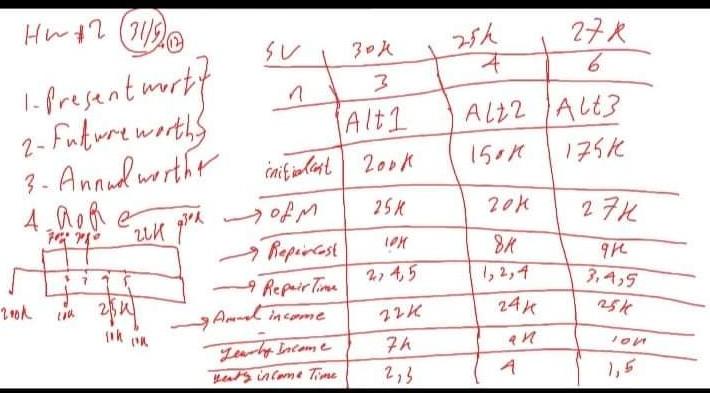 Hw #2 31/5 (12)
1- Present worth
2- Future worth
3- Annual worth
4- RoR
22K 30K
200K 10K 25K
10K 10K
SV 30K 25K 27K
n 3 4 6
Alt1 Alt2 Alt3
initial cost 200K 150K 175K
O&M 25K 20K 27K
Repair cost 10K 8K 9K
Repair Time 2,4,5 1,2,4 3,4,5
Annual income 22K 24K 25K
Yearly Income 7K 9K 10K
Yearly income Time 2,3 4 1,5